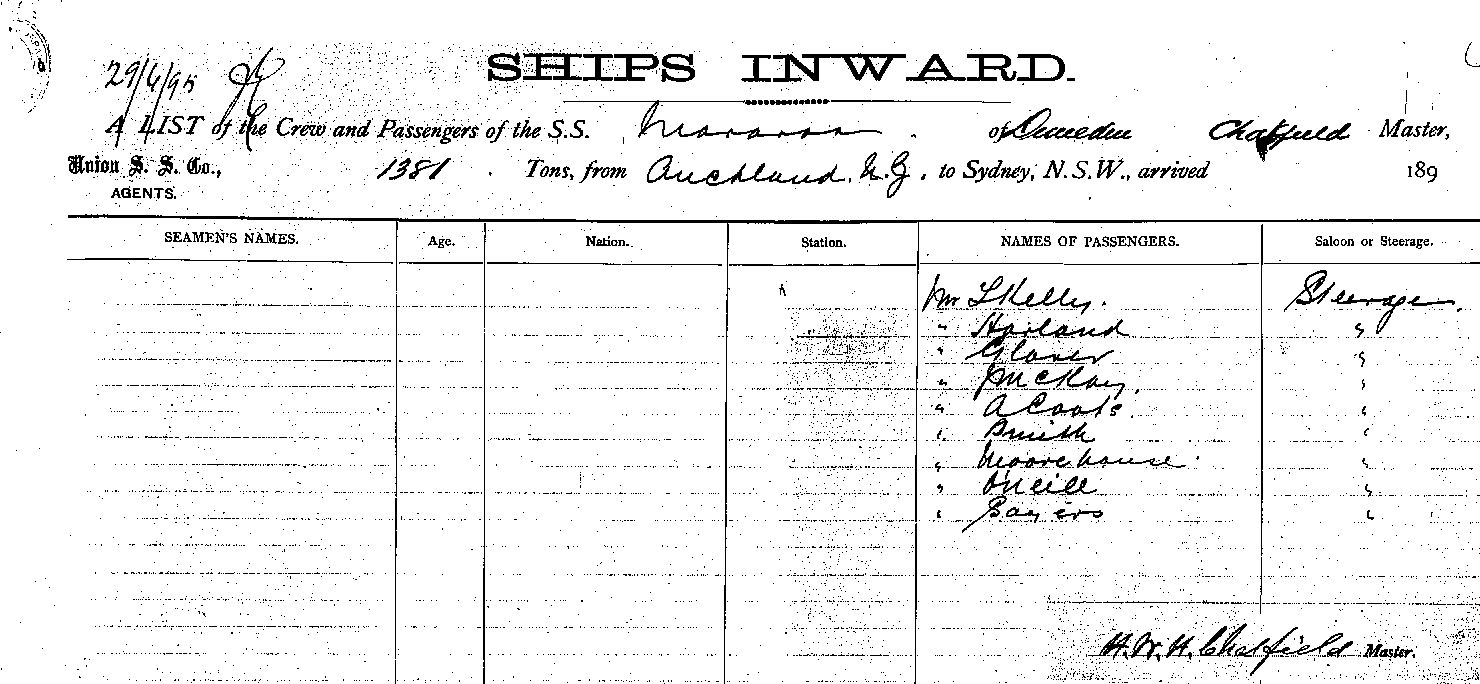 SHIPS INWARD.
29/6/95
A LIST of the Crew and Passengers of the S.S. Mararoa . of Dunedin Chatfield Master,
Union S. S. Co., 1381 . Tons, from Auckland. N.Z. to Sydney, N.S.W., arrived 189
AGENTS.
SEAMEN'S NAMES. Age. Nation. Station. NAMES OF PASSENGERS. Saloon or Steerage.
Mr Skelly. Steerage.
" Harland "
" Glover "
" McKay. "
" A Cook "
" Smith "
" Moorehouse "
" O'Neill "
" Sayers "
H. W. H. Chatfield Master.